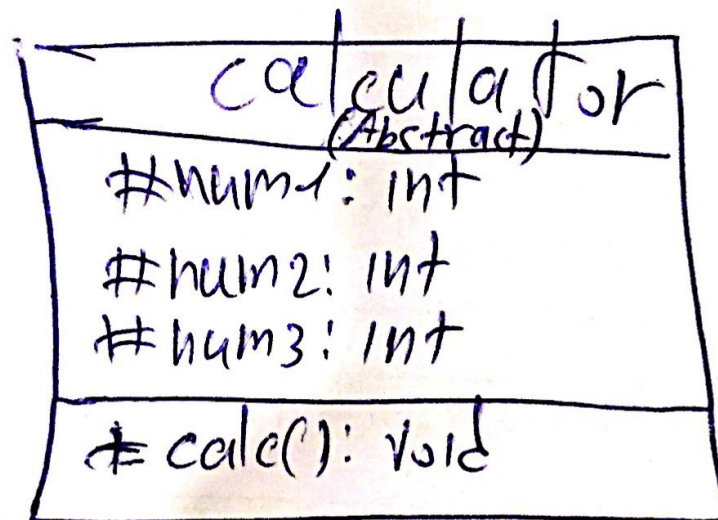 calculator
(Abstract)
#num1: int
#num2: int
#num3: int
+ calc(): void